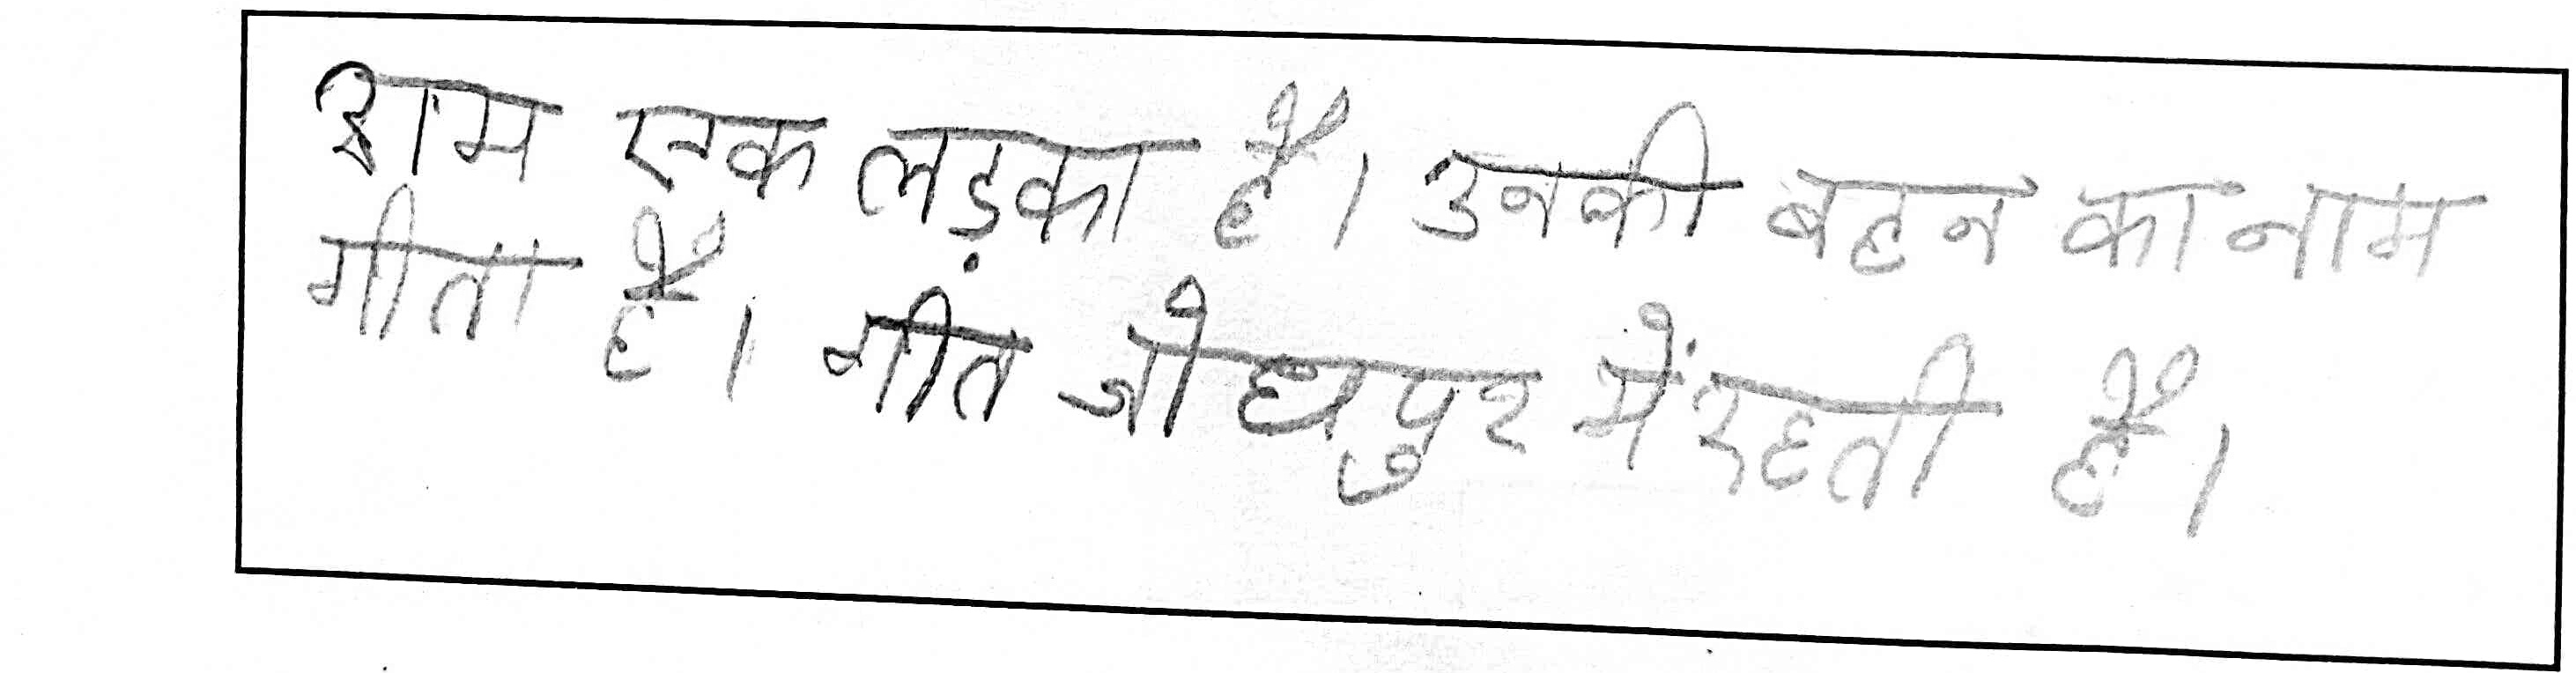 राम एक लड़का है। उनकी बहन का नाम
गीता है। गीत जोधपुर में रहती है।